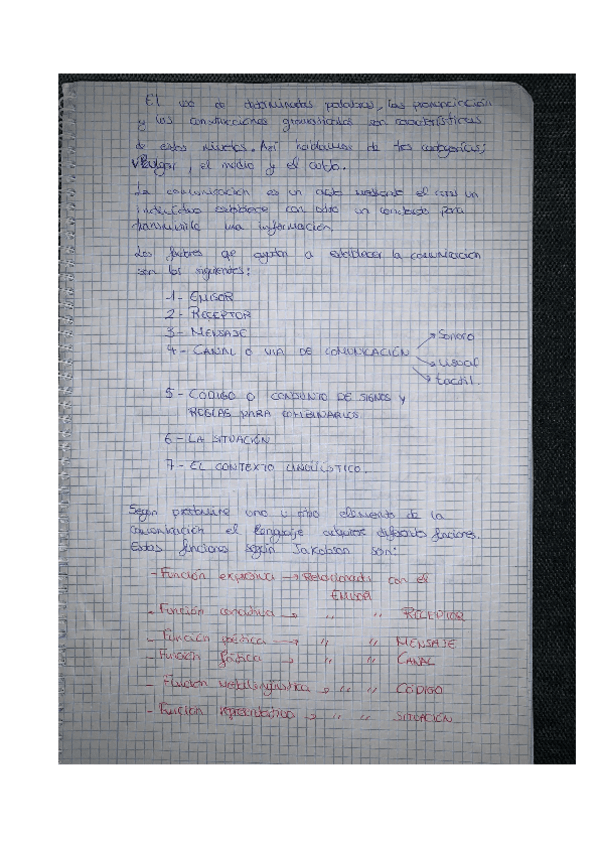 El uso de determinadas palabras, las pronunciación
y las construcciones gramaticales son características
de estos niveles. Así hablamos de tres categorías;
vulgar, el medio y el culto.
La comunicación es un acto mediante el cual un
individuo establece con otro un contacto para
transmitirle una información.
Los factores que ayudan a establecer la comunicación
son los siguientes:
1- EMISOR
2- RECEPTOR
3- MENSAJE
4- CANAL O VIA DE COMUNICACIÓN → Sonoro
→ visual
→ tactil.
5- CODIGO O CONJUNTO DE SIGNOS y
REGLAS PARA COMBINARLOS.
6- LA SITUACIÓN
7- EL CONTEXTO LINGÜÍSTICO.
Según predomine uno u otro elemento de la
comunicación el lenguaje adquiere diferentes funciones.
Estas funciones según Jakobson son:
- Función expresiva → Relacionada con el
EMISOR
- Función conativa → " " RECEPTOR
- Función poética → " " MENSAJE
- Función fática → " " CANAL
- Función metalingüística → " " CÓDIGO
- Función representativa → " " SITUACIÓN